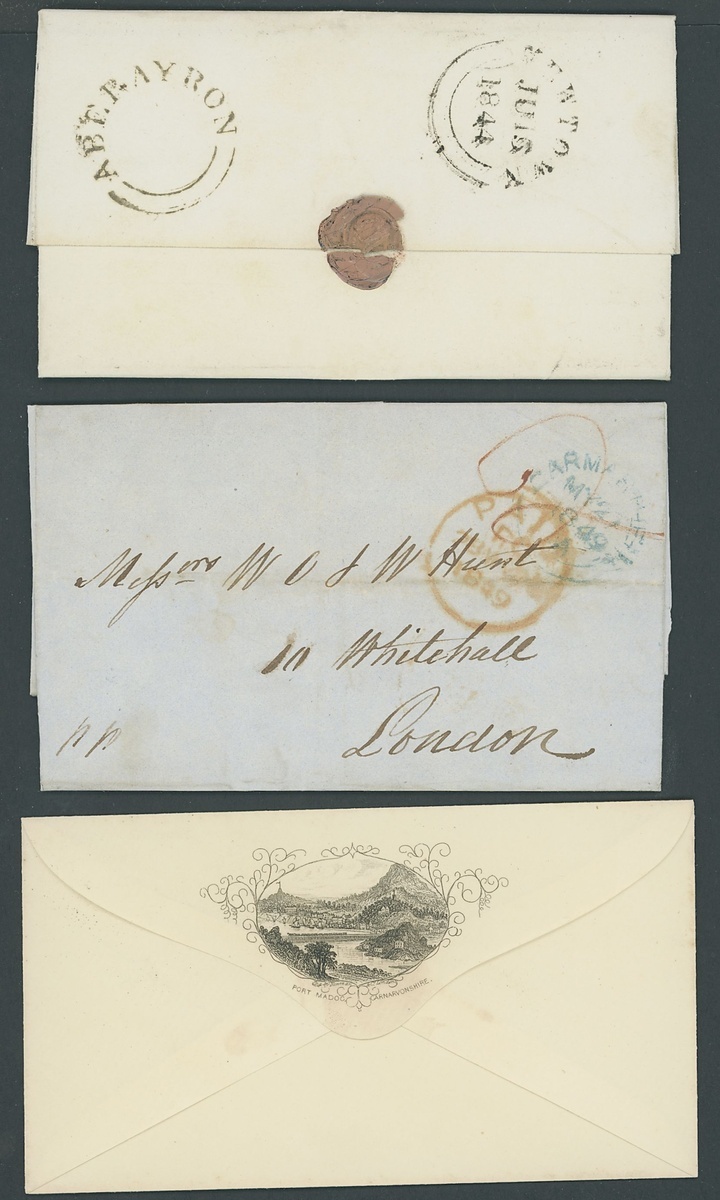 ABERAYRON
NEWTOWN
JU 16
1844
CARMARTHEN
MY
1849
PAID
1849
Messrs W O & W Hunt
10 Whitehall
London
pp
PORT MADOC, CARNARVONSHIRE.